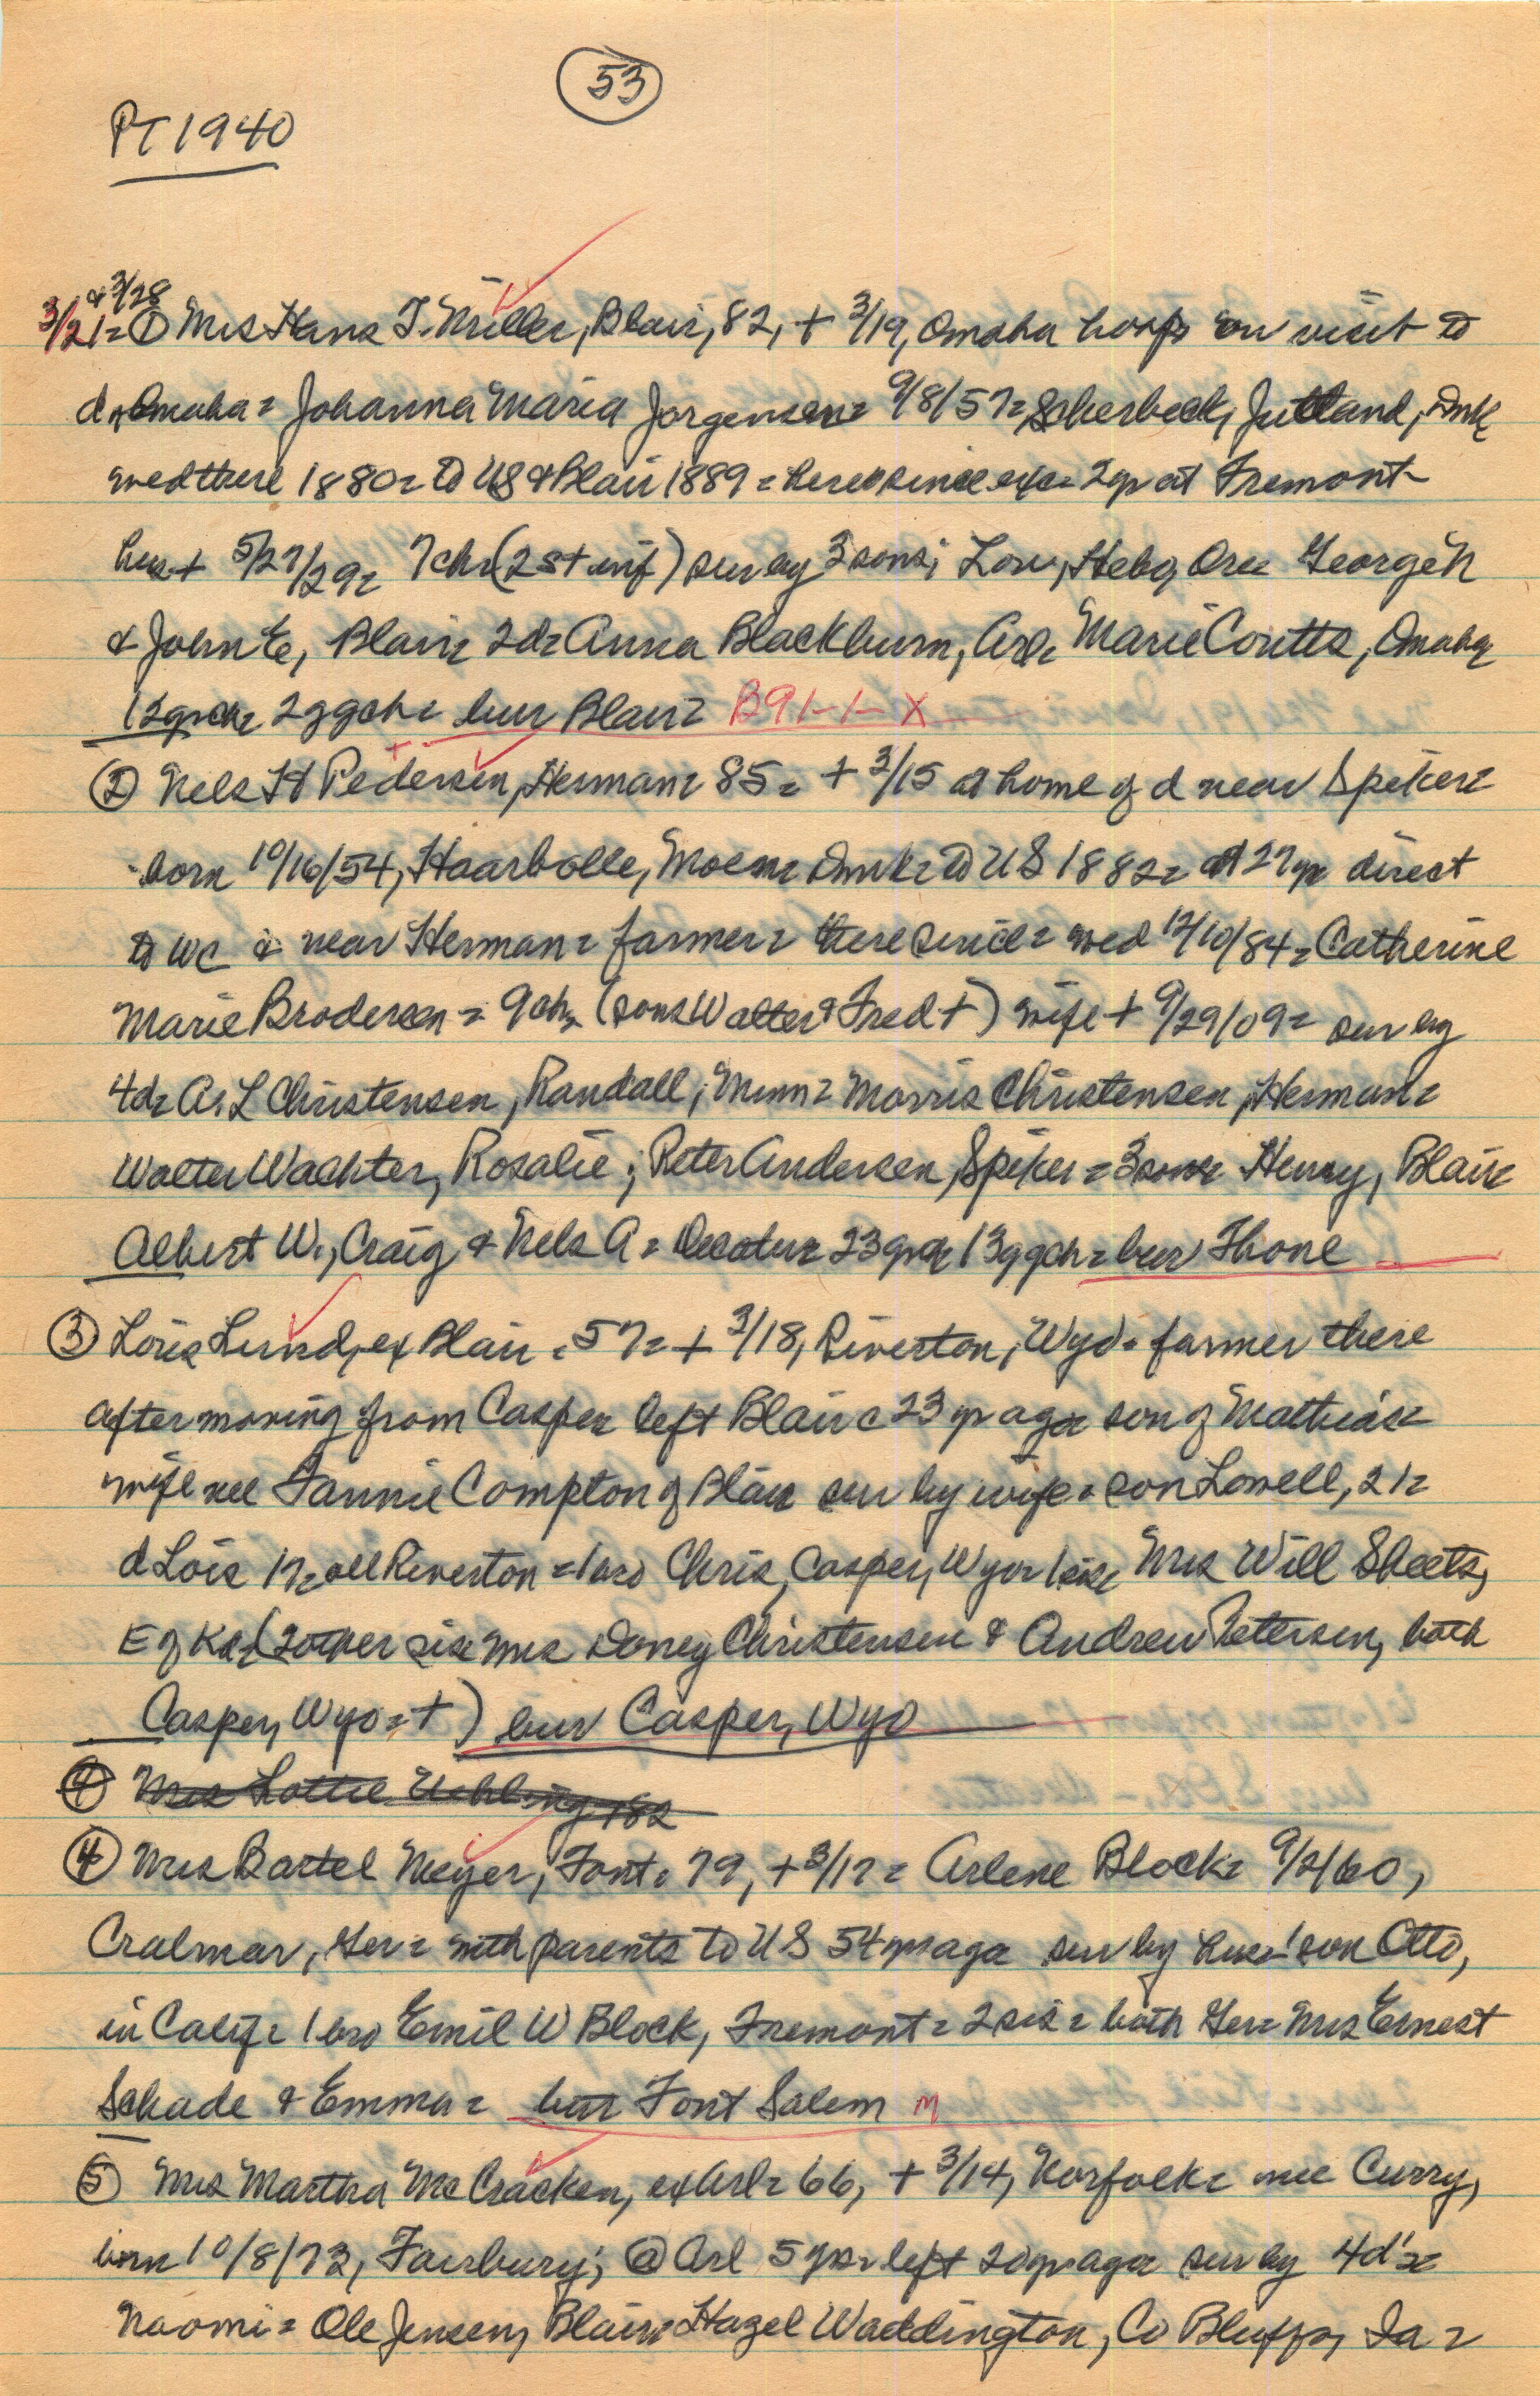 53
PT 1940
& 3/28
3/21= ① Mrs Hans J. Miller, Blair, 82, + 3/19, Omaha hosp on visit to
d Omaha = Johanna Maria Jorgensen = 9/8/57 = Scherbeck, Jutland, Dmk
wed there 1880 = to US & Blair 1889 = here since exc 2 yr at Fremont
hus + 5/27/29 = 7 ch (2 st inf) sur by 3 sons; Lou, Hebo, Ore George H
& John E, Blair = 2d = Anna Blackburn, Arl = Marie Coutts, Omaha
12 grch = 2 ggch = bur Blair = B91-1-X
② Nels H Pedersen, Herman = 85 = + 3/15 at home of d near Spiker =
born 10/16/54, Haarbolle, Moen = Dmk = to US 1882 = at 27 yr direct
to WC & near Herman = farmer = there since = wed 12/10/84 = Catherine
Marie Brodersen = 9 ch = (sons Walter & Fred +) wife + 9/29/09 = sur by
4d = A. L Christensen, Randall, Minn = Morris Christensen, Herman =
Walter Wachter, Rosalie; Peter Andersen, Spiker = 3 sons = Henry, Blair =
Albert W., Craig & Nels A = Decatur = 23 grch = 13 ggch = bur Fhone
③ Loris Lund, ex Blair = 57 = + 3/18, Riverton, Wyo = farmer there
after moving from Casper = left Blair c 23 yr ago = son of Mathias =
wife nee Fannie Compton of Blair = sur by wife = son Lowell, 21 =
d Lois 17 = all Riverton = 1 bro Chris, Casper, Wyo = 1 sis = Mrs Will Sheets,
E of Ka = (2 other sis Mrs Doney Christensen & Andrew Petersen, both
Casper, Wyo = +) bur Casper, Wyo
④ Mrs Lottie Uehling, 82
④ Mrs Bartel Meyer, Font = 79, + 3/17 = Arlene Block = 9/2/60,
Cralmar, Ger = with parents to US 54 yr ago = sur by hus = 1 son Otto,
in Calif = 1 bro Emil W Block, Fremont = 2 sis = both Ger = Mrs Ernest
Schade & Emma = bur Font Salem M
⑤ Mrs Martha McCracken, ex Arl = 66, + 3/14, Norfolk = nee Curry,
born 10/8/73, Fairbury; @ Arl 5 yr = left 20 yr ago = sur by 4d's =
Naomi = Ole Jensen, Blair = Hazel Waddington, Co Bluffs, Ia =